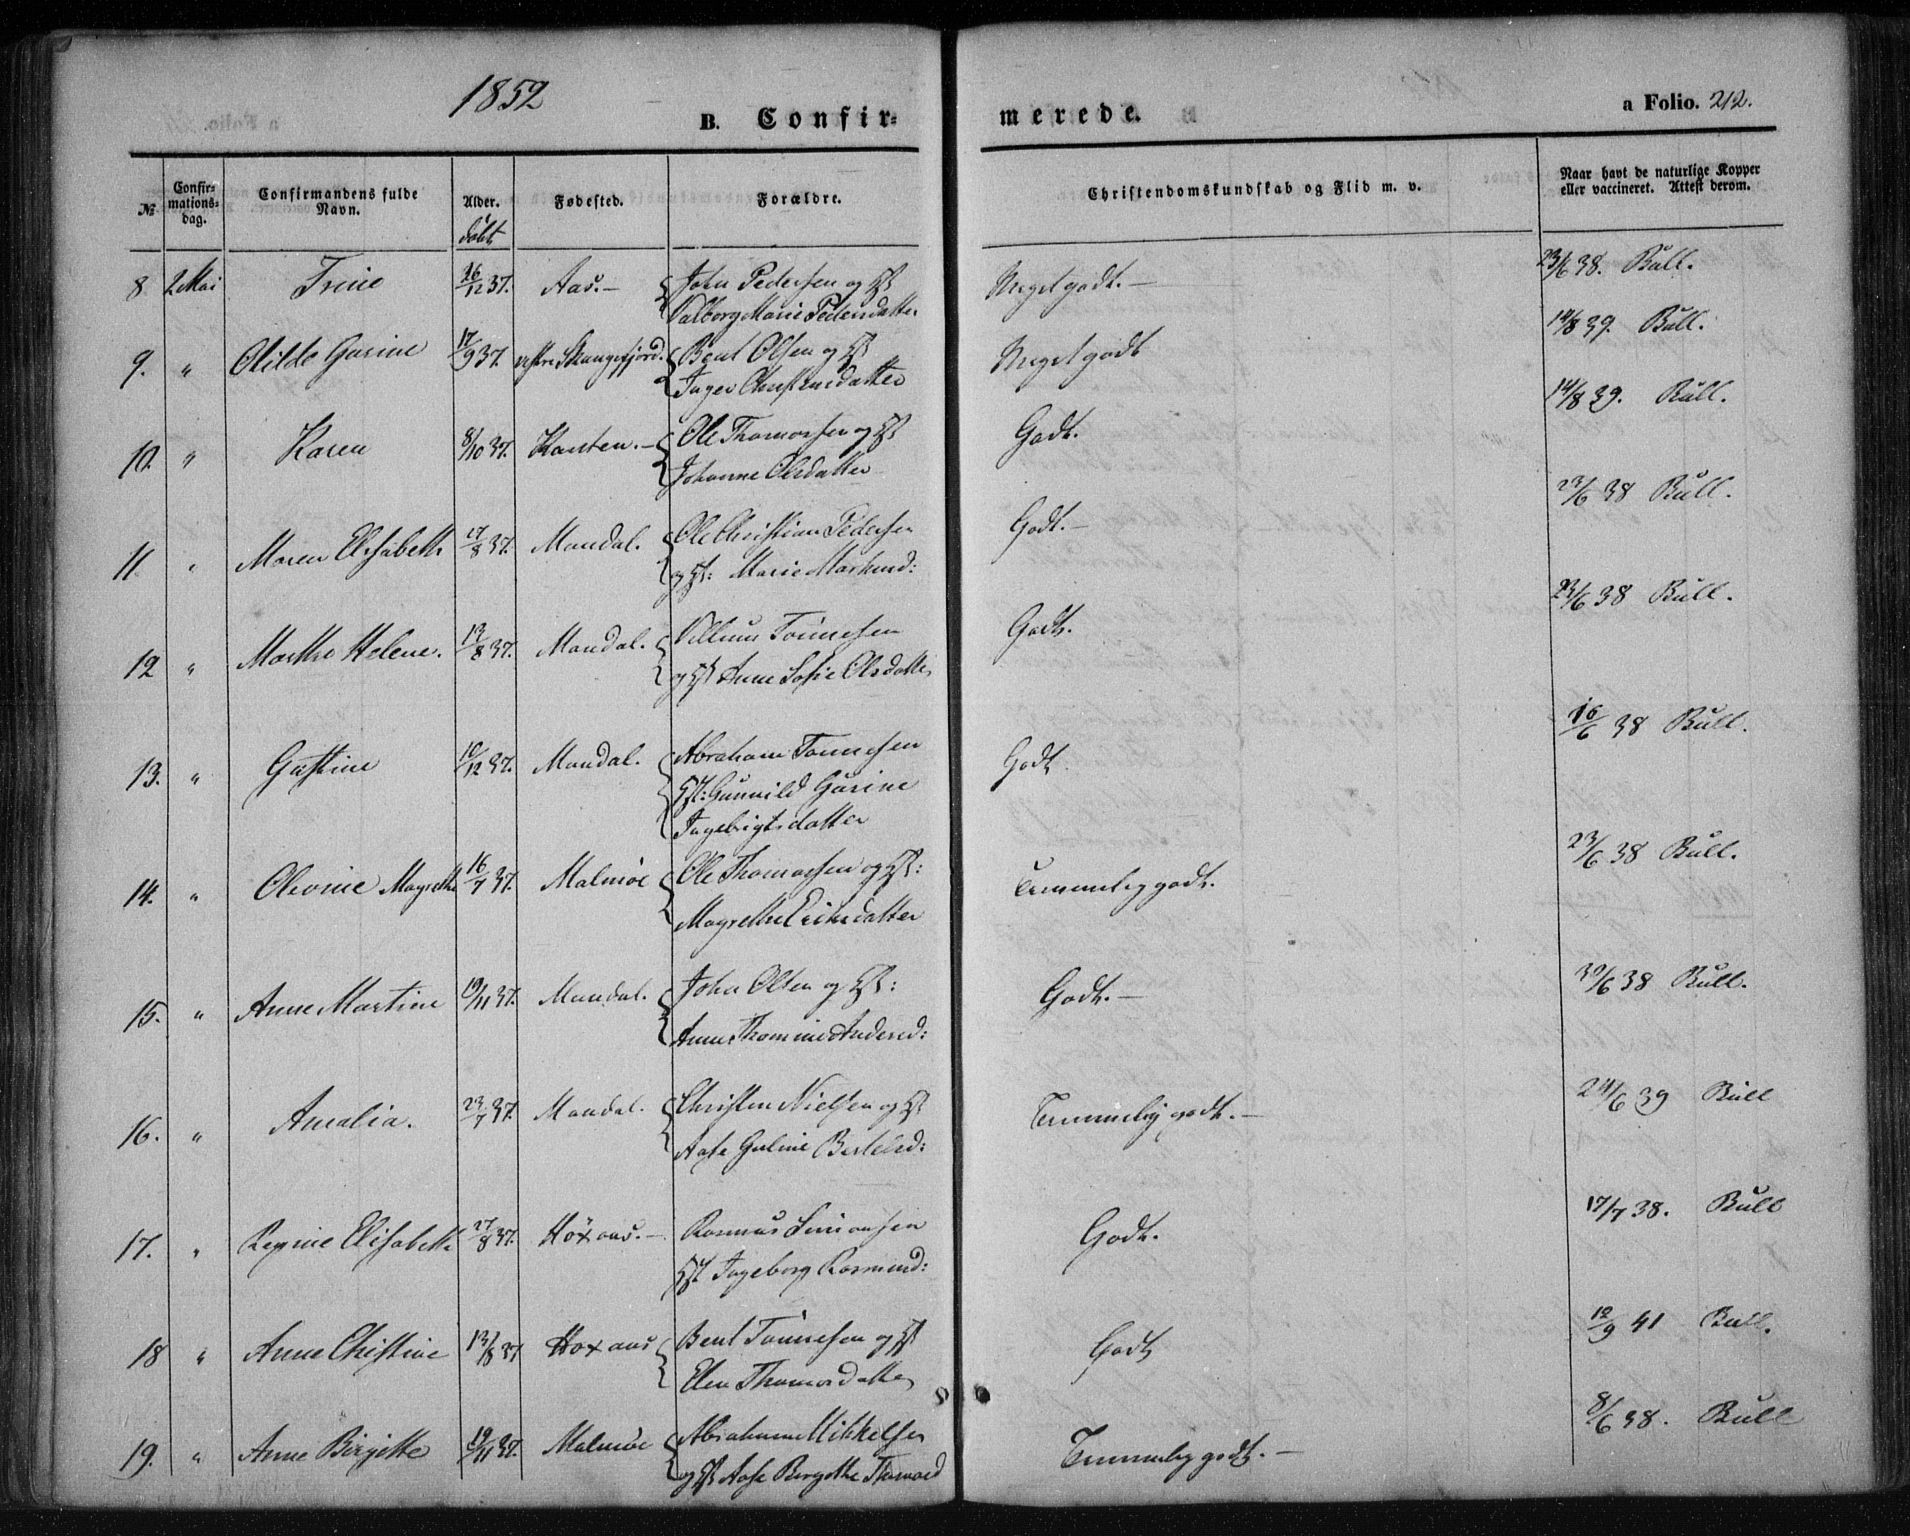 1852
B. Confir=
merede.
a Folio. 212.
№
Confir=
mations=
dag.
Confirmandens fulde
Navn.
Alder.
døbt
Fødested.
Forældre.
Christendomskundskab og Flid m. v.
Naar havt de naturlige Kopper
eller vaccineret. Attest derom.
8 2 Mai Trine 26/12 37. Aas. — John Pedersen og Hst Meget godt. — 23/6 38. Bull.
Valborg Marie Pedersdatter
9. " Olilde Gurine 17/9 37. vestre Skungefjord. Bent Olsen og Hst Meget godt 14/8 39. Bull.
Inger Christensdatter
10. " Karen 8/10 37. Ole Thomassen og Hst Godt. 14/8 39. Bull.
Johanne Olesdatter
11. " Maren Elisabeth 27/8 37. Mandal. Ole Christian Pedersen Godt. — 23/6 38 Bull.
og Hst: Marie
12 " Marthe Helene. 13/8 37. Mandal. Villum Tönnesen Godt. 23/6 38 Bull.
og Hst Anne Sofie Olsdatter
13. " Gustine 10/12 37. Mandal. Abraham Tönnesen Godt 16/6 38 Bull.
Hst: Gunvild Gurine
Ingebrigtsdatter
14. " Olevine Magrethe 16/7 37. Malmöe Ole Thomassen og Hst: Temmelig godt. 23/6 38 Bull.
Magrethe Eriksdatter
15. " Anne Martine 19/11 37. Mandal. John Olsen og Hst: Godt. — 30/6 38 Bull.
Anne Thomine Andersd:
16. " Amalia. 23/7 37. Mandal. Christen Nielsen og Hst Temmelig godt. — 24/6 39 Bull
Aase Guline Bertelsd:
17. " Regine Elisabeth 27/8 37. Höxaas. — Rasmus Simonsen Godt. 17/7 38. Bull
Hst Ingeborg Rasmusd:
18 " Anne Christine 13/8 37 Höxaas Bent Tönnesen og Hst Godt 12/9 41 Bull.
Elen Thomasdatter
19. " Anne Birgitte 19/11 37. Malmöe Abraham Mikkelsen Temmelig godt. — 8/6 38. Bull
og Hst Aase Bergithe Thomasd